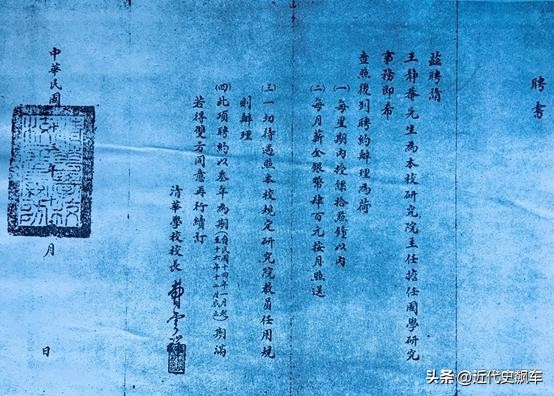 聘書
茲聘請
王靜菴先生為本校研究院主任擔任國學研究
事務即希
查照後列聘約辦理為荷
(一)每星期內授課拾點鐘以內
(二)每月薪金銀幣肆百元按月照送
(三)一切待遇照本校規定研究院教員任用規
則辦理
(四)此項聘約以叁年為期(自民國十四年一月起至十六年十二月底止)期滿
若得雙方同意再行續訂
清華學校校長 曹雲祥
中華民國 年 月 日
头条 @近代史飙车